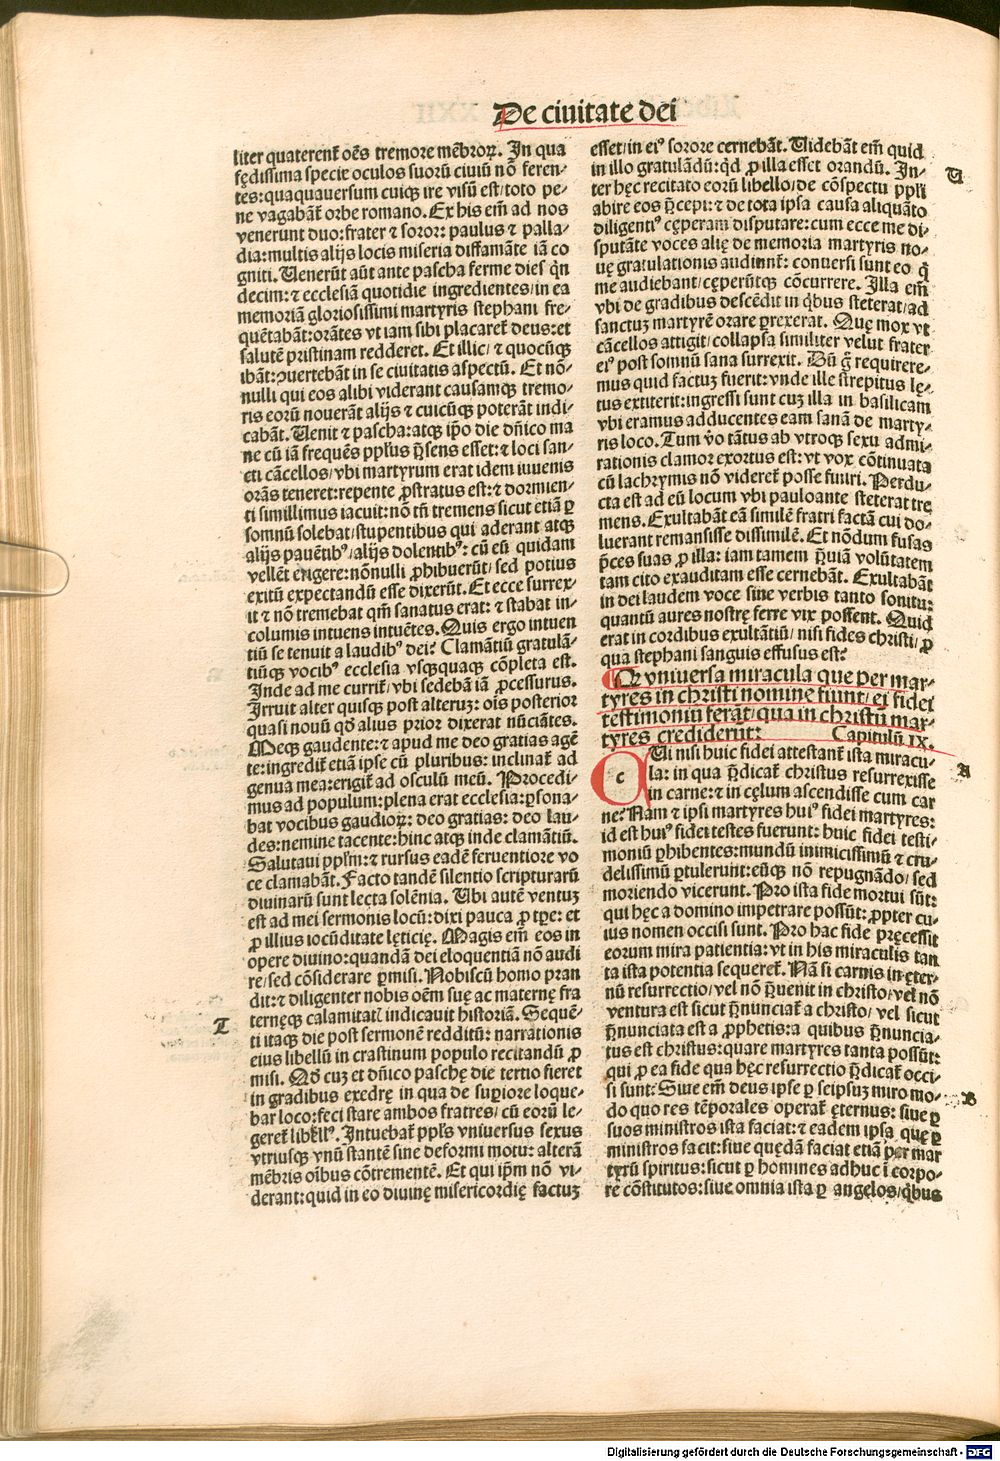 De ciuitate dei
liter quaterent̃ oẽs tremore mẽbroꝝ. In qua
fędissima specie oculos suorũ ciuiũ nõ feren⸗
tes: quaquauersum cuiqꝫ ire visũ est/ toto pe⸗
ne vagabãt̃ orbe romano. Ex his em̃ ad nos
venerunt duo: frater ⁊ soror: paulus ⁊ palla⸗
dia: multis alijs locis miseria diffamãte iã co
gniti. Uenerũt aũt ante pascha ferme dies q̃n
decim: ⁊ ecclesiã quotidie ingredientes/ in ea
memoriã gloriosissimi martyris stephani fre⸗
quẽtabãt: orãtes vt iam sibi placaret̃ deus: et
salutẽ pristinam redderet. Et illic/ ⁊ quocũqꝫ
ibãt: ꝯuertebãt in se ciuitatis aspectũ. Et nõ⸗
nulli qui eos alibi viderant causamqꝫ tremo⸗
ris eorũ nouerãt alijs ⁊ cuicũqꝫ poterãt indi⸗
cabãt. Uenit ⁊ pascha: atqꝫ ip̃o die dñico ma
ne cũ iã frequẽs pp̃ľus p̃sens esset: ⁊ loci san⸗
cti cãcellos/ vbi martyrum erat idem iuuenis
orãs teneret: repente ꝓstratus est: ⁊ dormien⸗
ti simillimus iacuit: nõ tñ tremens sicut etiã ꝑ
somnũ solebat/ stupentibus qui aderant atqꝫ
alijs pauẽtibꝰ/ alijs dolentibꝰ: cũ eũ quidam
vellẽt erigere: nõnulli ꝓhibuerũt/ sed potius
exitũ expectandũ esse dixerũt. Et ecce surrex⸗
it ⁊ nõ tremebat qm̃ sanatus erat: ⁊ stabat in⸗
columis intuens intuẽtes. Quis ergo intuen
tiũ se tenuit a laudibꝰ dei? Clamãtiũ gratulã⸗
tiũqꝫ vocibꝰ ecclesia vsqꝫquaqꝫ cõpleta est.
Inde ad me currit̃/ vbi sedebã iã ꝓcessurus.
Irruit alter quisqꝫ post alteruꝫ: oĩs posterior
quasi nouũ qď alius prior dixerat nũciãtes.
Meqꝫ gaudente: ⁊ apud me deo gratias agẽ
te: ingredit̃ etiã ipse cũ pluribus: inclinat̃ ad
genua mea: erigit̃ ad osculũ meũ. Procedi⸗
mus ad populum: plena erat ecclesia: ꝑsona⸗
bat vocibus gaudioꝝ: deo gratias: deo lau⸗
des: nemine tacente: hinc atqꝫ inde clamãtiũ.
Salutaui pp̃ľm: ⁊ rursus eadẽ feruentiore vo
ce clamabãt. Facto tandẽ silentio scripturarũ
diuinarũ sunt lecta solẽnia. Ubi autẽ ventuꝫ
est ad mei sermonis locũ: dixi pauca ꝓ tp̃e: et
ꝓ illius iocũditate lęticię. Magis em̃ eos in
opere diuino: quandã dei eloquentiã nõ audi
re/ sed cõsiderare ꝑmisi. Nobiscũ homo pran
dit: ⁊ diligenter nobis oẽm suę ac maternę fra
ternęqꝫ calamitatꝭ indicauit historiã. Sequẽ⸗
T
ti itaqꝫ die post sermonẽ redditũ: narrationis
eius libellũ in crastinum populo recitandũ ꝓ
misi. Qď cuꝫ et dñico paschę die tertio fieret
in gradibus exedrę in qua de suꝑiore loque⸗
bar loco: feci stare ambos fratres/ cũ eorũ le⸗
geret̃ libellꝰ. Intuebat̃ pp̃ľs vniuersus sexus
vtriusqꝫ vnũ stantẽ sine deformi motu: alterã
mẽbris oĩbus cõtrementẽ. Et qui ip̃m nõ vi⸗
derant: quid in eo diuinę misericordię factuꝫ
esset/ in eiꝰ sorore cernebãt. Uidebãt em̃ quid
in illo gratulãdũ: qď ꝓ illa esset orandũ. In⸗
U
ter hęc recitato eorũ libello/ de cõspectu pp̃ľi
abire eos p̃cepi: ⁊ de tota ipsa causa aliquãto
diligentiꝰ cęperam disputare: cum ecce me di⸗
sputãte voces alię de memoria martyris no⸗
uę gratulationis audiunt̃: conuersi sunt eo q̃
me audiebant/ cęperũtqꝫ cõcurrere. Illa em̃
vbi de gradibus descẽdit in q̃bus steterat/ ad
sanctuꝫ martyrẽ orare ꝑrexerat. Quę mox vt
cãcellos attigit/ collapsa similiter velut frater
eiꝰ post somnũ sana surrexit. Dũ g̃ requirere⸗
mus quid factuꝫ fuerit: vnde ille strepitus lę⸗
tus extiterit: ingressi sunt cuꝫ illa in basilicam
vbi eramus adducentes eam sanã de marty⸗
ris loco. Tum v̊o tãtus ab vtroqꝫ sexu admi⸗
rationis clamor exortus est: vt vox cõtinuata
cũ lachrymis nõ videret̃ posse finiri. Perdu⸗
cta est ad eũ locum vbi pauloante steterat tre
mens. Exultabãt eã similẽ fratri factã cui do⸗
luerant remansisse dissimilẽ. Et nõdum fusas
p̃ces suas ꝓ illa: iam tamem p̃uiã volũtatem
tam cito exauditam esse cernebãt. Exultabãt
in dei laudem voce sine verbis tanto sonitu:
quantũ aures nostrę ferre vix possent. Quid
erat in cordibus exultãtiũ/ nisi fides christi/ ꝓ
qua stephani sanguis effusus est?
Qꝫ vniuersa miracula que per mar⸗
tyres in christi nomine fiunt/ ei fidei
testimoniũ ferãt/ qua in christũ mar⸗
tyres crediderũt: Capitulũ IX.
c Ui nisi huic fidei attestant̃ ista miracu⸗
A
la: in qua p̃dicat̃ christus resurrexisse
in carne: ⁊ in cęlum ascendisse cum car
ne? Nam ⁊ ipsi martyres huiꝰ fidei martyres:
id est huiꝰ fidei testes fuerunt: huic fidei testi⸗
moniũ ꝑhibentes: mundũ inimicissimũ ⁊ cru⸗
delissimũ ꝑtulerunt: eũqꝫ nõ repugnãdo/ sed
moriendo vicerunt. Pro ista fide mortui sũt:
qui hęc a domino impetrare possũt: ꝓpter cu⸗
ius nomen occisi sunt. Pro hac fide pręcessit
eorum mira patientia: vt in his miraculis tan
ta ista potentia sequeret̃. Nã si carnis in ęter⸗
nũ resurrectio/ vel nõ p̃uenit in christo/ vel nõ
ventura est sicut p̃nunciat̃ a christo/ vel sicut
p̃nunciata est a ꝓphetis: a quibus p̃nuncia⸗
tus est christus: quare martyres tanta possũt:
qui ꝓ ea fide qua hęc resurrectio p̃dicat̃ occi⸗
si sunt: Siue em̃ deus ipse ꝑ seipsuꝫ miro mo⸗
B
do quo res tẽporales operat̃ ęternus: siue ꝑ
suos ministros ista faciat: ⁊ eadem ipsa quę ꝑ
ministros facit: siue quędã faciat etiã per mar
tyrũ spiritus: sicut ꝑ homines adhuc ĩ corpo⸗
re cõstitutos: siue omnia ista ꝑ angelos/ q̃bus
Digitalisierung gefördert durch die Deutsche Forschungsgemeinschaft - DFG